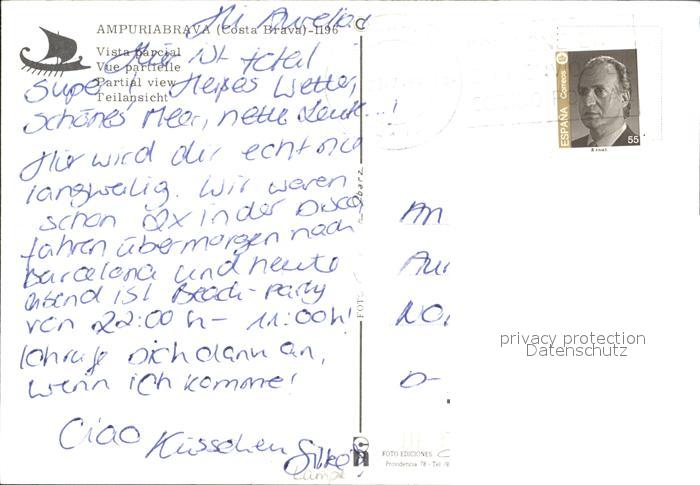 AMPURIABRAVA (Costa Brava)-1196
Vista parcial
Vue partielle
Partial view
Teilansicht
Hi Aurelia
Hier ist total
super, Heißes Wetter,
schönes Meer, nette Leute...!
Hier wird dir echt nie
langweilig. Wir waren
schon 2x in der Disco
fahren übermorgen nach
Barcelona und heute
abend ist Beach-Party
von 22:00 h - 11:00h!
Ich rufe Dich dann an,
wenn ich komme!
Ciao Küsschen Silke
ESPAÑA Correos
55
An
Aur
No
D-
privacy protection
Datenschutz
FOTO EDICIONES
Providencia 78 - Tel